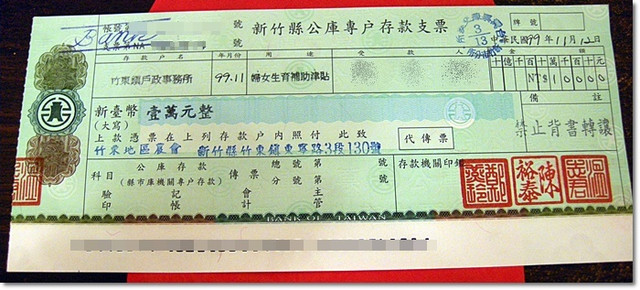 帳號
號
新竹縣公庫專戶存款支票
牌號
支票NA
中華民國99年11月12日
存款戶名
年月份
用途
金額
十億千百十萬千百十元
竹東鎮戶政事務所
99.11
婦女生育補助津貼
NT$10000
新臺幣
(大寫)
壹萬元整
備註
上款憑票在上列存款戶內照付 此致
代傳票
禁止背書轉讓
竹東地區農會 新竹縣竹東鎮東寧路3段130號
科目
公庫存款
(縣市庫機關專戶存款)
傳票
總號 第號
分號 第號
存款機關印鑑
驗印
記帳
會計
主管
陳裕泰
BANK OF TAIWAN